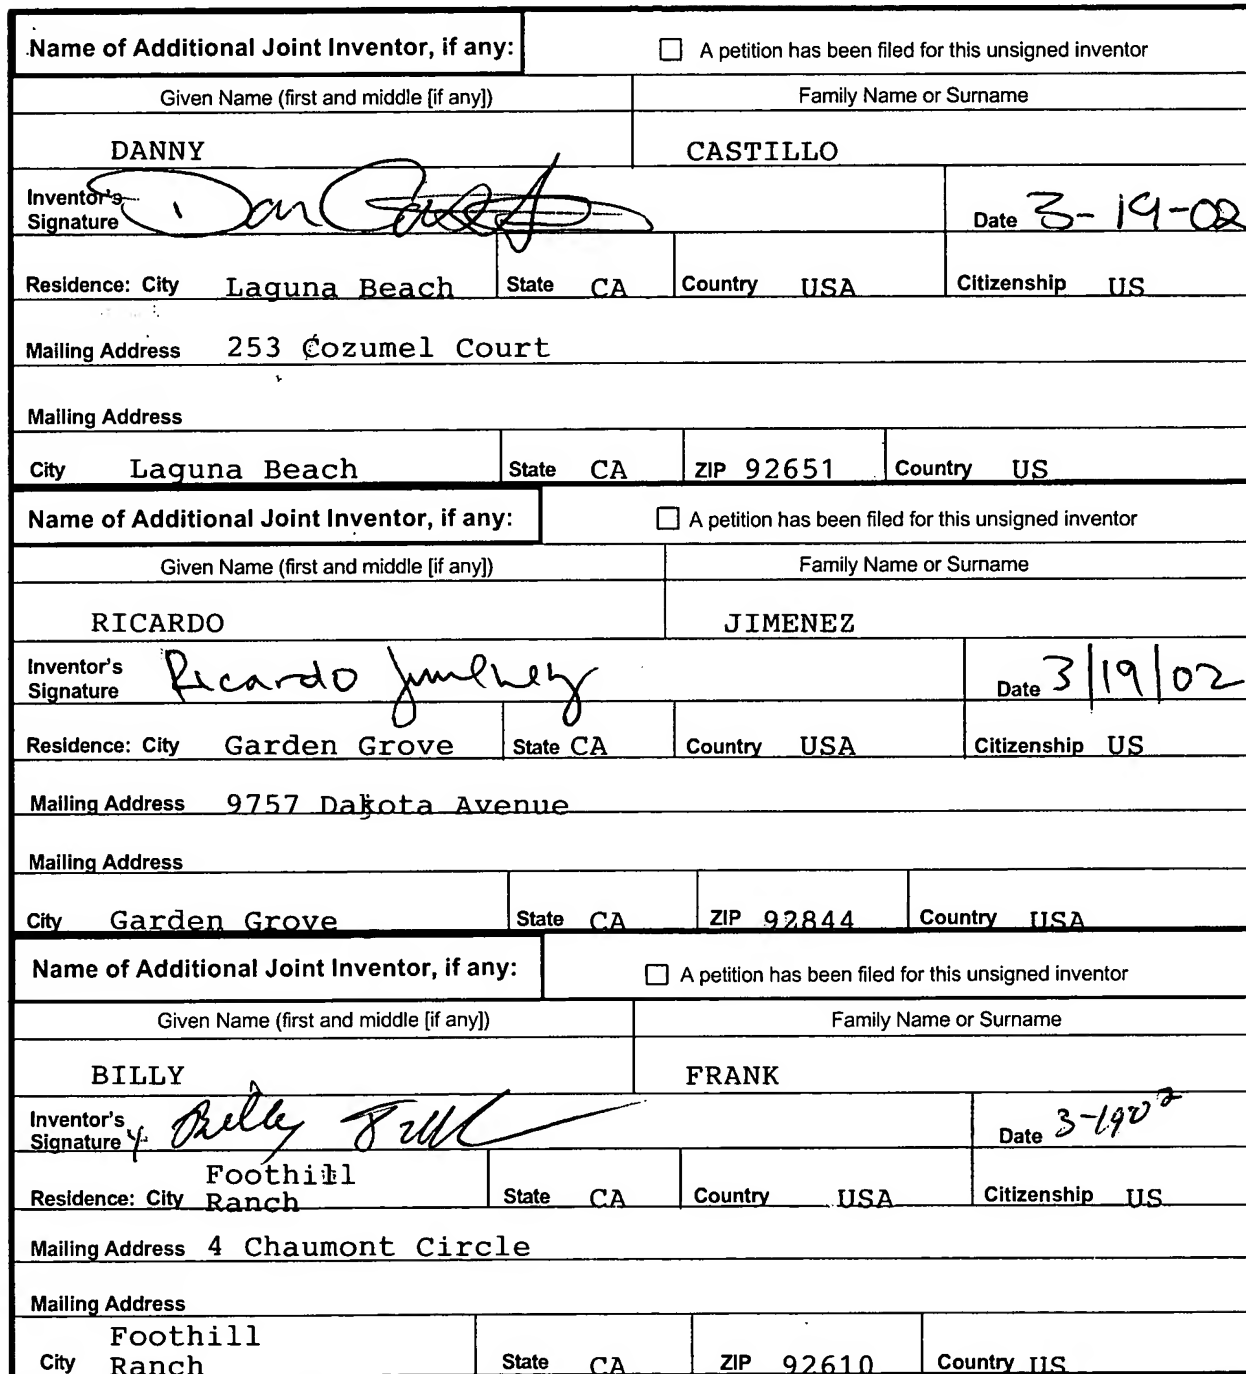 Name of Additional Joint Inventor, if any: ☐ A petition has been filed for this unsigned inventor
Given Name (first and middle [if any]) Family Name or Surname
DANNY CASTILLO
Inventor's Signature Date 3-19-02
Residence: City Laguna Beach State CA Country USA Citizenship US
Mailing Address 253 Cozumel Court
Mailing Address
City Laguna Beach State CA ZIP 92651 Country US
Name of Additional Joint Inventor, if any: ☐ A petition has been filed for this unsigned inventor
Given Name (first and middle [if any]) Family Name or Surname
RICARDO JIMENEZ
Inventor's Signature Ricardo Jimenez Date 3/19/02
Residence: City Garden Grove State CA Country USA Citizenship US
Mailing Address 9757 Dakota Avenue
Mailing Address
City Garden Grove State CA ZIP 92844 Country USA
Name of Additional Joint Inventor, if any: ☐ A petition has been filed for this unsigned inventor
Given Name (first and middle [if any]) Family Name or Surname
BILLY FRANK
Inventor's Signature Billy Date 3-1902
Residence: City Foothill Ranch State CA Country USA Citizenship US
Mailing Address 4 Chaumont Circle
Mailing Address
City Foothill Ranch State CA ZIP 92610 Country US